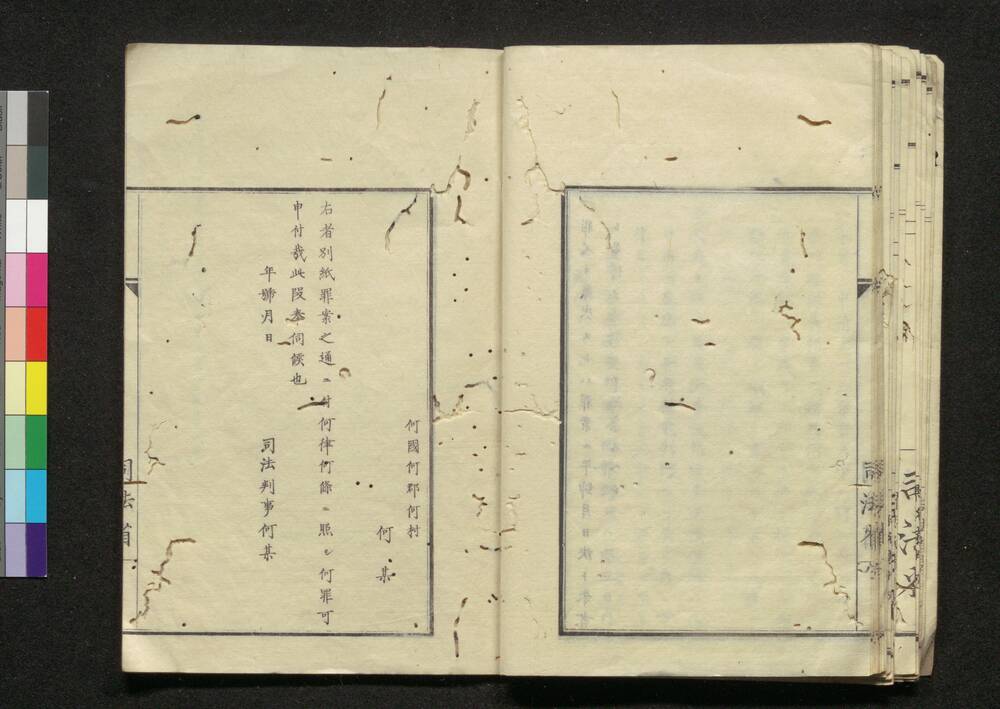 何國何郡何村
何某
右者別紙罪案之通ニ付何律何條ニ照シ何罪可
申付哉此段奉伺候也
年號月日
司法判事何某
司法省
司法省